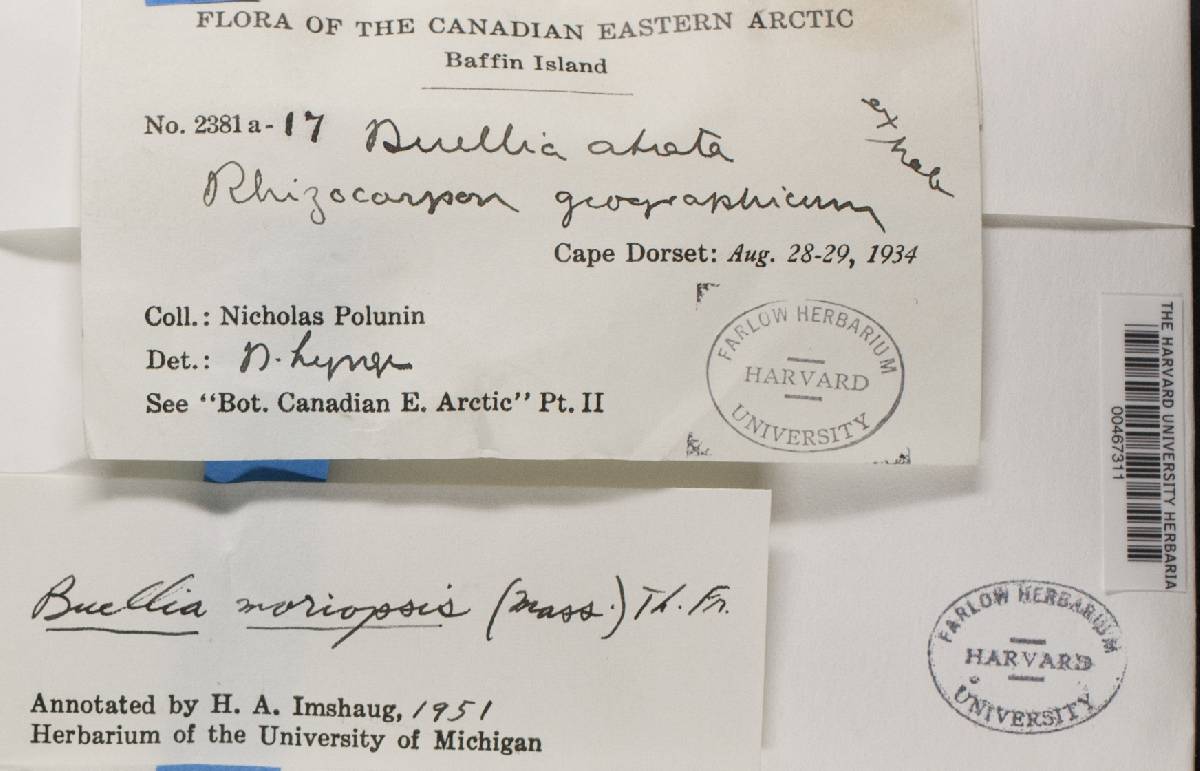 FLORA OF THE CANADIAN EASTERN ARCTIC
Baffin Island
No. 2381 a - 17 Buellia atrata
ex hab
Rhizocarpon geographicum
Cape Dorset: Aug. 28-29, 1934
Coll.: Nicholas Polunin
Det.: B. Lynge
See "Bot. Canadian E. Arctic" Pt. II
FARLOW HERBARIUM
HARVARD
UNIVERSITY
THE HARVARD UNIVERSITY HERBARIA
00467311
Buellia moriopsis (Mass.) Th. Fr.
Annotated by H. A. Imshaug, 1951
Herbarium of the University of Michigan
FARLOW HERBARIUM
HARVARD
UNIVERSITY